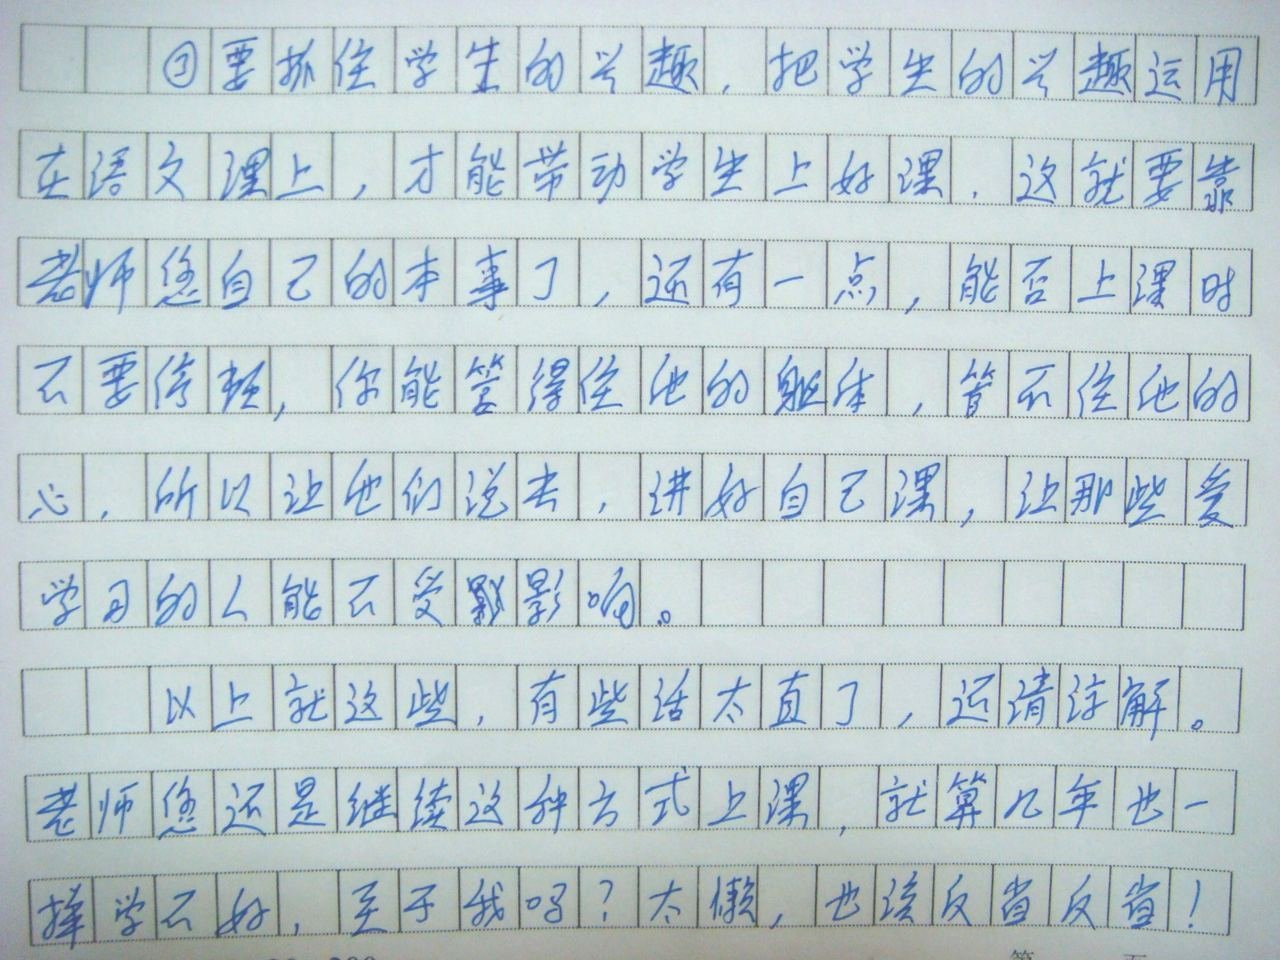 ③要抓住学生的兴趣，把学生的兴趣运用
在语文课上，才能带动学生上好课．这就要靠
老师您自己的本事了，还有一点，能否上课时
不要停顿，你能管得住他的躯体，管不住他的
心．所以让他们说去，讲好自己课，让那些爱
学习的人能不受影响。
以上就这些，有些话太直了，还请谅解。
老师您还是继续这种方式上课，就算几年也一
样学不好，至于我吗？太懒，也该反省反省！